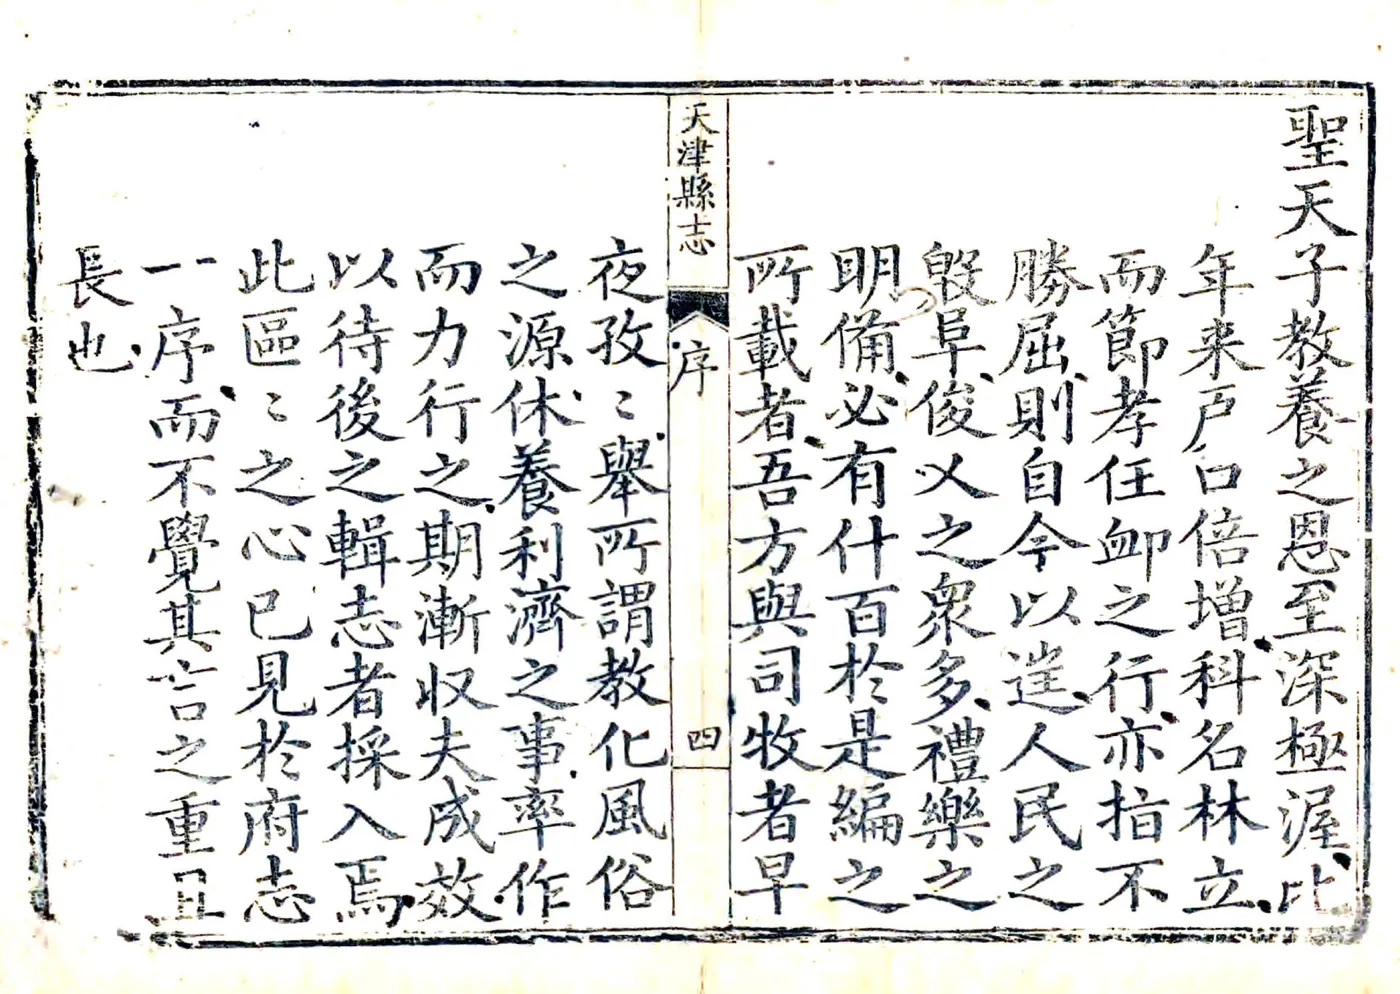 聖天子教養之恩至深極渥比
年来戸口倍增科名林立
而節孝任卹之行亦指不
勝屈則自今以迬人民之
殷阜俊乂之衆多禮樂之
明備必有什百於是編之
所載者吾方與司牧者早
天津縣志
序
四
夜孜〻舉所謂教化風俗
之源休養利濟之事率作
而力行之期漸収夫成效
以待後之輯志者採入焉
此區〻之心已見於府志
一序而不覺其言之重且
長也